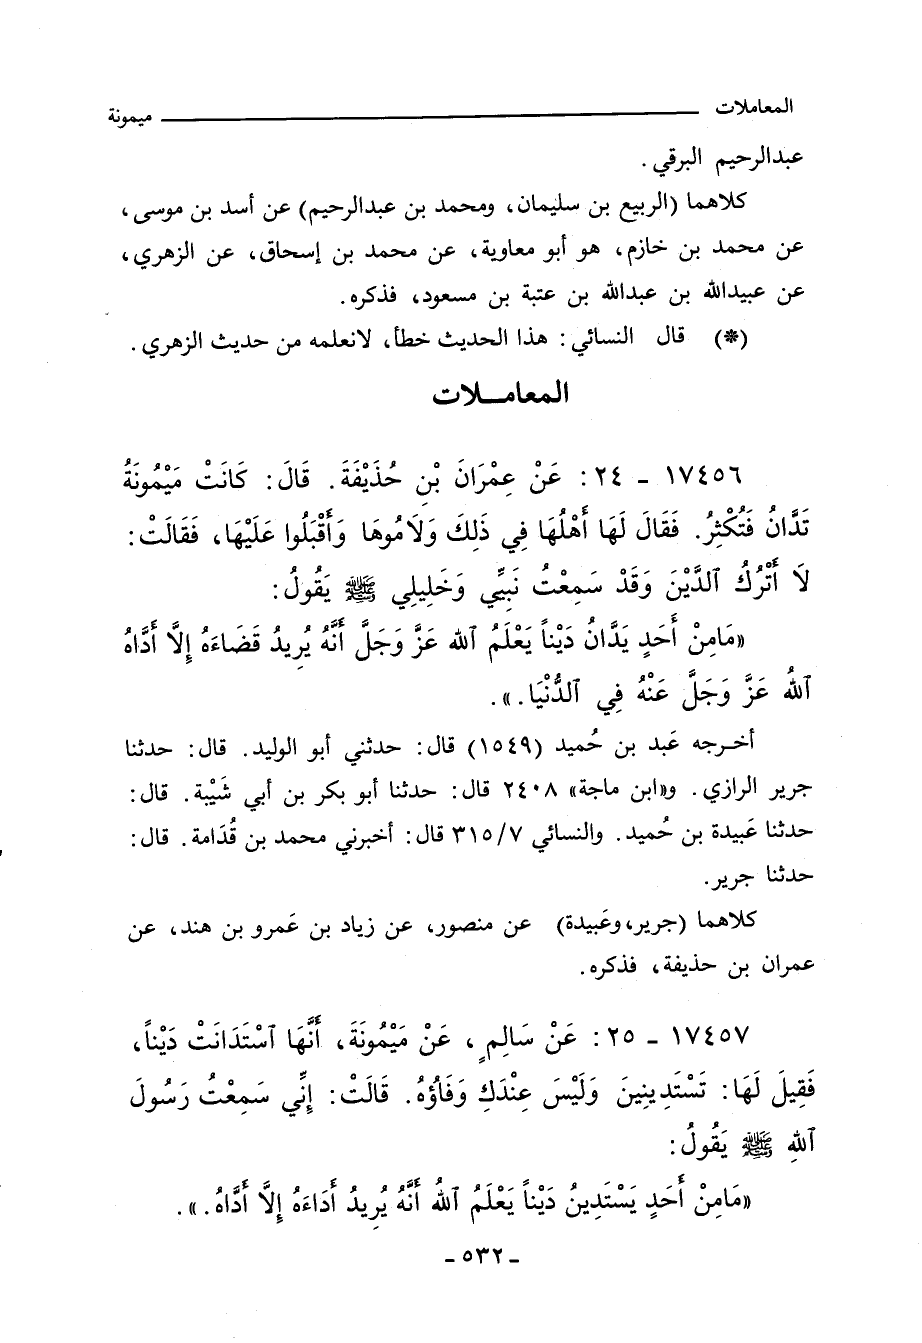 المعاملات ــــــــــــــــــــــــــــــــ ميمونة
عبدالرحيم البرقي .
كلاهما (الربيع بن سليمان، ومحمد بن عبدالرحيم) عن أسد بن موسى،
عن محمد بن خازم، هو أبو معاوية، عن محمد بن إسحاق، عن الزهري،
عن عبيدالله بن عبدالله بن عتبة بن مسعود، فذكره.
(*) قال النسائي: هذا الحديث خطأ، لانعلمه من حديث الزهري.
المعامــلات
١٧٤٥٦ - ٢٤: عَنْ عِمْرَانَ بْنِ حُذَيْفَةَ. قَالَ: كَانَتْ مَيْمُونَةُ
تَدَّانُ فَتُكْثِرُ. فَقَالَ لَهَا أَهْلُهَا فِي ذَلِكَ وَلَامُوهَا وَأَقْبَلُوا عَلَيْهَا، فَقَالَتْ:
لَا أَتْرُكُ ٱلدَّيْنَ وَقَدْ سَمِعْتُ نَبِيِّي وَخَلِيلِي ﷺ يَقُولُ:
«مَامِنْ أَحَدٍ يَدَّانُ دَيْناً يَعْلَمُ ٱلله عَزَّ وَجَلَّ أَنَّهُ يُرِيدُ قَضَاءَهُ إِلَّا أَدَّاهُ
ٱللهُ عَزَّ وَجَلَّ عَنْهُ فِي ٱلدُّنْيَا.».
أخـرجه عَبد بن حُميد (١٥٤٩) قال: حدثني أبو الوليد. قال: حدثنا
جرير الرازي. و«ابن ماجة» ٢٤٠٨ قال: حدثنا أبو بكر بن أبي شَيْبة. قال:
حدثنا عَبيدة بن حُميد. والنسائي ٣١٥/٧ قال: أخبرني محمد بن قُدَامة. قال:
حدثنا جرير.
كلاهما (جرير، وعَبيدة) عن منصور، عن زياد بن عَمرو بن هند، عن
عمران بن حذيفة، فذكره.
١٧٤٥٧ - ٢٥: عَنْ سَالِمٍ، عَنْ مَيْمُونَةَ، أَنَّهَا ٱسْتَدَانَتْ دَيْناً،
فَقِيلَ لَهَا: تَسْتَدِينِينَ وَلَيْسَ عِنْدَكِ وَفَاؤُهُ. قَالَتْ: إِنِّي سَمِعْتُ رَسُولَ
ٱللهِ ﷺ يَقُولُ:
«مَامِنْ أَحَدٍ يَسْتَدِينُ دَيْناً يَعْلَمُ ٱللهُ أَنَّهُ يُرِيدُ أَدَاءَهُ إِلَّا أَدَّاهُ.».
- ٥٣٢ -